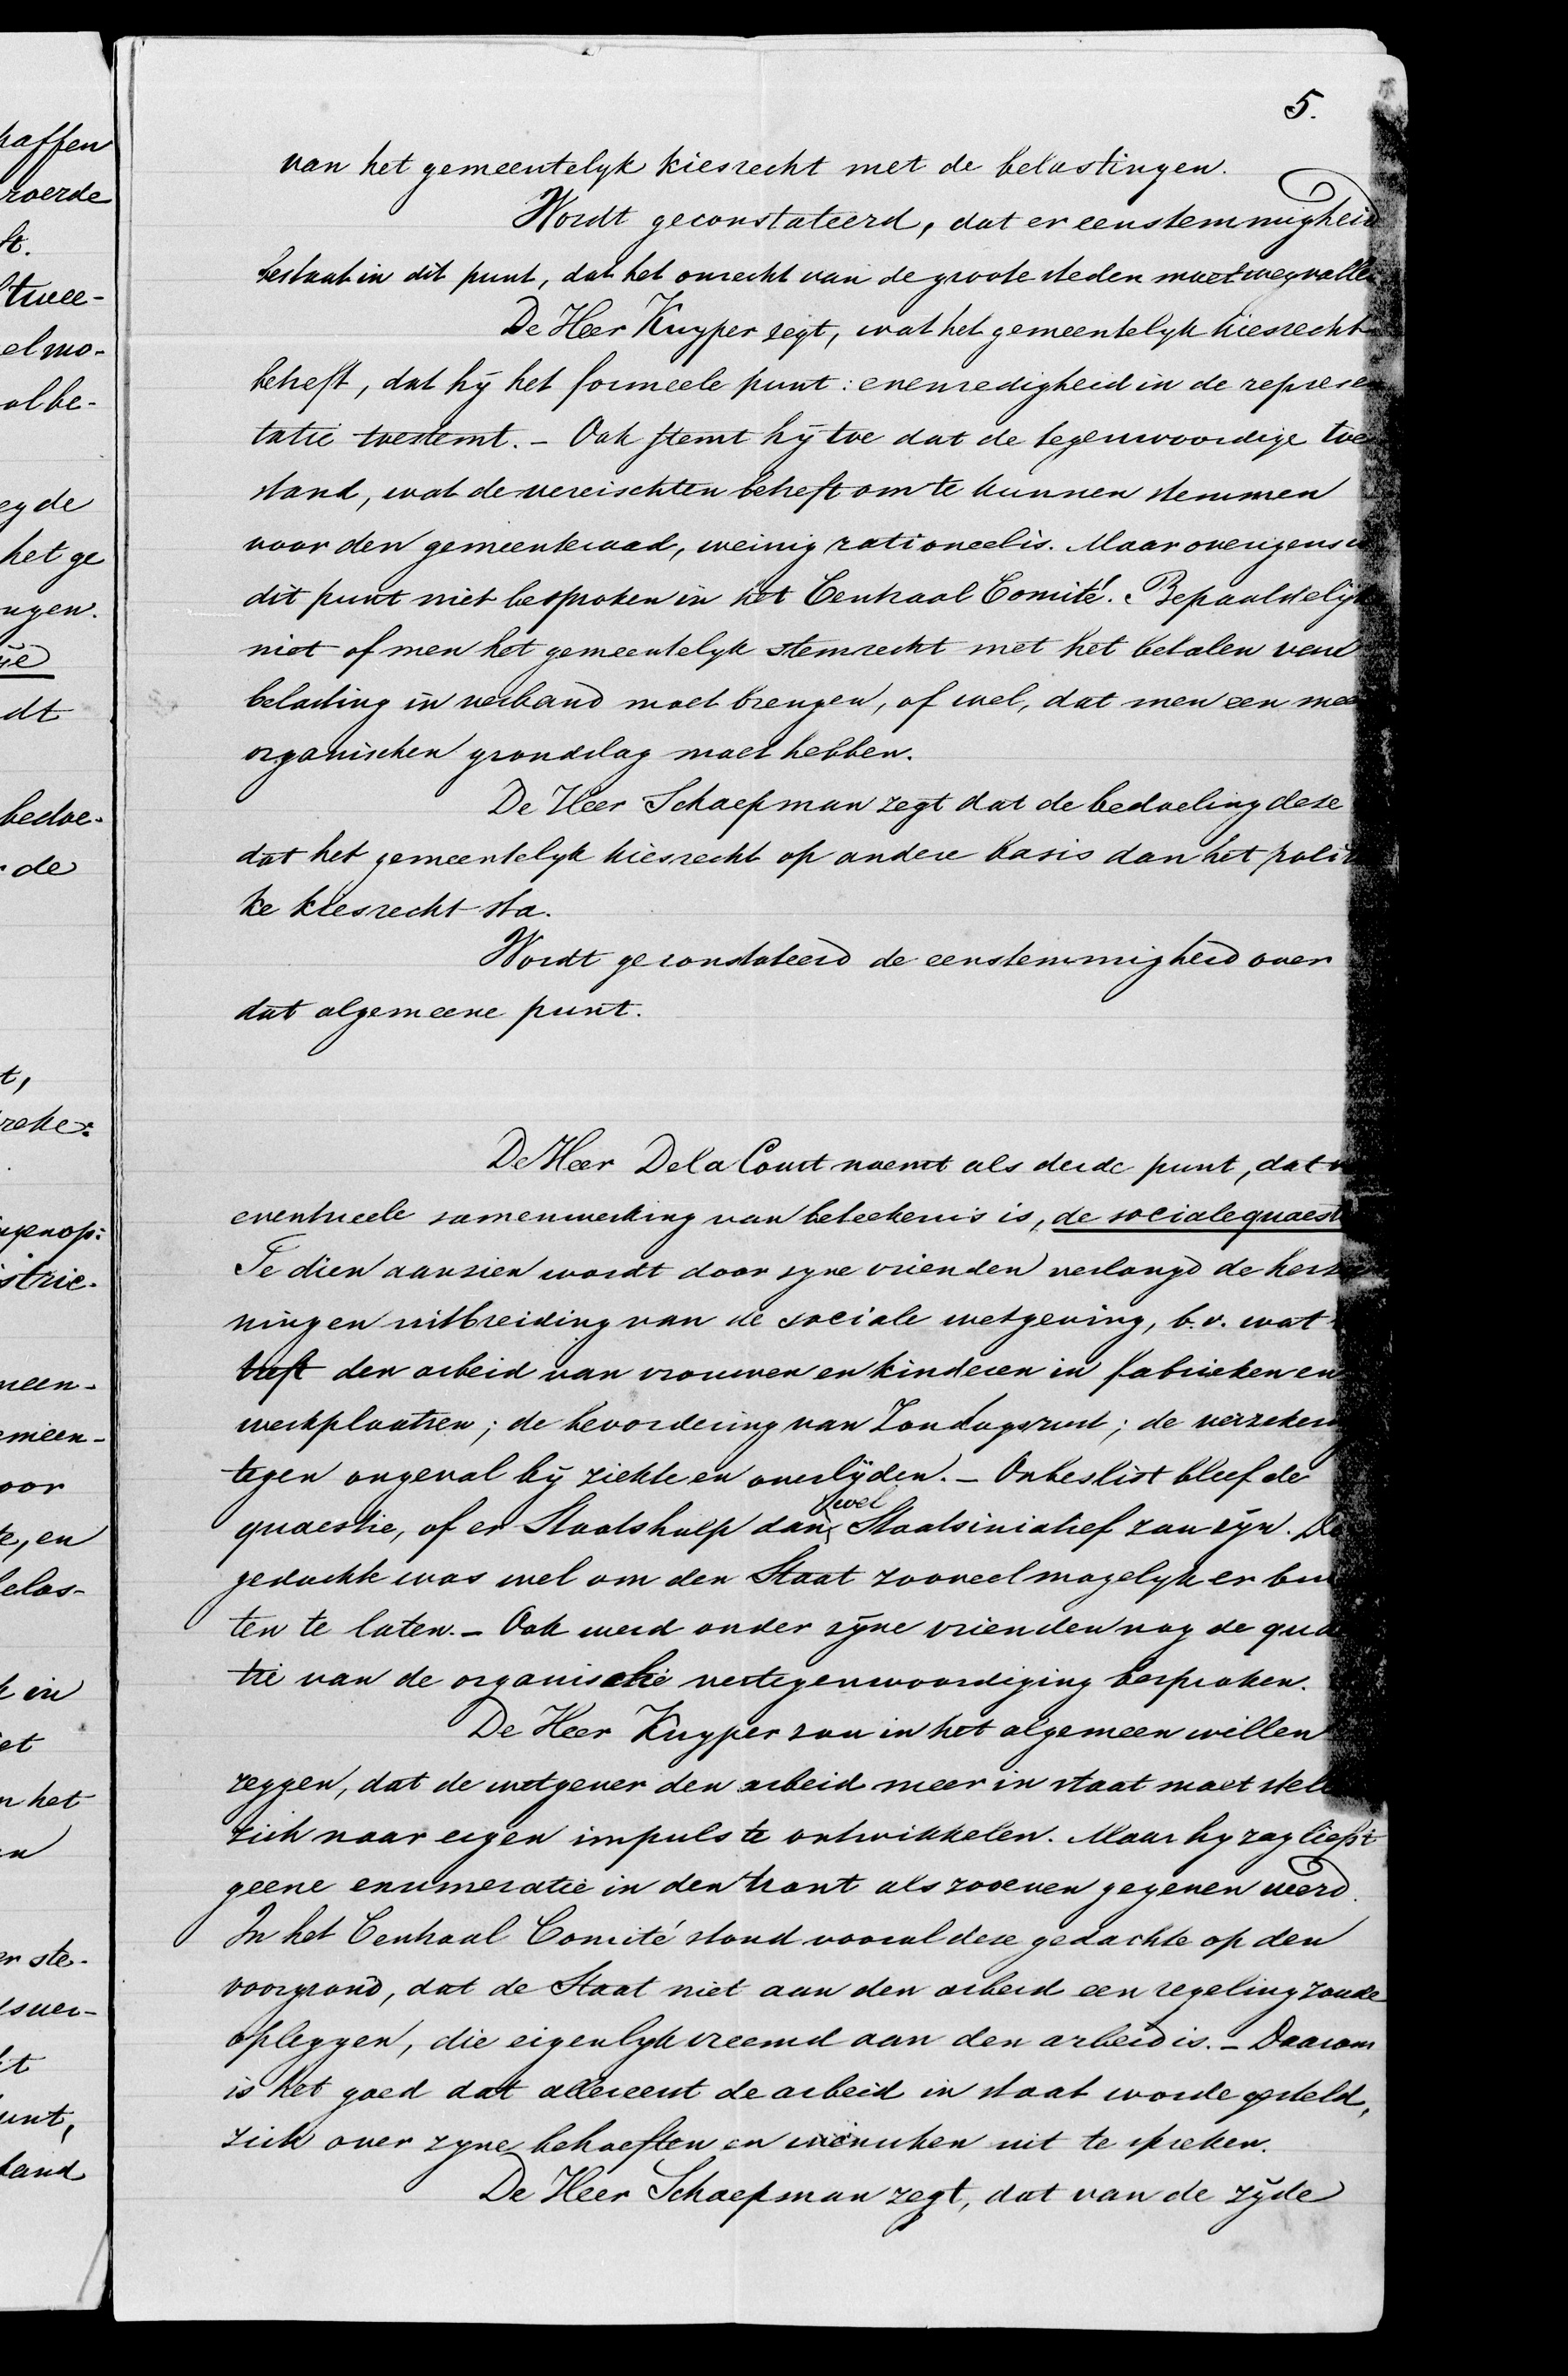 5.
van het gemeentelyk kiesrecht met de belastingen.
Wordt geconstateerd, dat er eenstemmigheid
bestaat in dit punt, dat het onrecht van de groote steden moet wegvalle
De Heer Kuyper zegt, wat het gemeentelyk kiesrecht
betreft, dat hij het formeele punt: evenredigheid in de represen
tatie toestemt. – Ook stemt hij toe dat de tegenwoordige toe
stand, wat de vereischten betreft om te kunnen stemmen
voor den gemeenteraad, weinig rationeel is. Maar overigens
dit punt niet besproken in het Centraal Comité. Bepaaldelijk
niet of men het gemeentelyk stemrecht met het betalen van
belasting in verband moet brengen, of wel, dat men een mee
organischen grondslag moet hebben.
De Heer Schaepman zegt dat de bedoeling deze
dat het gemeentelyk kiesrecht op andere basis dan het polit
ke kiesrecht sta.
Wordt geconstateerd de eenstemmigheid over
dat algemeene punt.
De Heer De la Court noemt als derde punt, dat
eventueele samenwerking van beteekenis is, de sociale quaest
Te dien aanzien wordt door zyne vrienden verlangd de herzie
ning en uitbreiding van de sociale wetgeving, b.v. wat
treft den arbeid van vrouwen en kinderen in fabrieken en
werkplaatsen; de bevordering van Zondagsrust; de verzeker
tegen ongeval bij ziekte en overlijden. – Onbeslist bleef de
quaestie, of er Staatshulp dan wel Staatsiniatief zou zijn. De
gedachte was wel om den Staat zooveel mogelyk er bui
ten te laten. – Ook werd onder zijne vrienden nog de quae
tie van de organische vertegenwoordiging besproken.
De Heer Kuyper zou in het algemeen willen
zeggen, dat de wetgever den arbeid meer in staat moet stell
zich naar eigen impuls te ontwikkelen. Maar hy zag liefst
geene enumeratie in den trant als zooeven gegeven werd.
In het Centraal Comité stond vooral deze gedachte op den
voorgrond, dat de Staat niet aan den arbeid een regeling zoude
opleggen, die eigenlyk vreemd aan den arbeid is. – Daarom
is het goed dat allereerst de arbeid in staat worde gesteld,
zich over zyne behoeften en wenschen uit te spreken.
De Heer Schaepman zegt, dat van de zijde